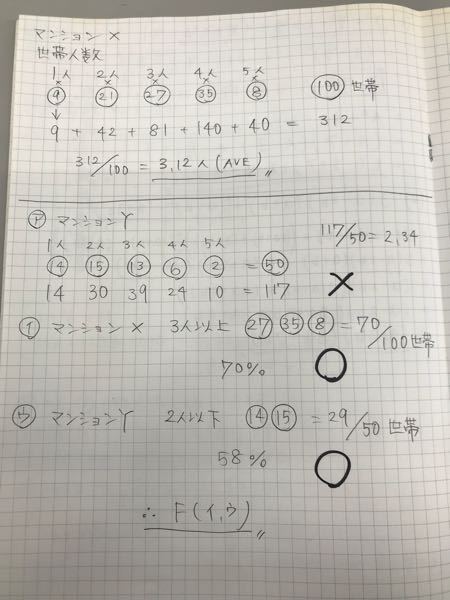 マンション X
世帯人数
1人 2人 3人 4人 5人
× × × × ×
9 21 27 35 8 100 世帯
↓
9 + 42 + 81 + 140 + 40 = 312
312/100 = 3,12人 (AVE)〃
ア マンションY
117/50 = 2,34
1人 2人 3人 4人 5人
14 15 13 6 2 = 50
14 30 39 24 10 = 117 ×
イ マンション X 3人以上 27 35 8 = 70/100世帯
70% ○
ウ マンションY 2人以下 14 15 = 29/50 世帯
58% ○
∴ F(イ,ウ)〃